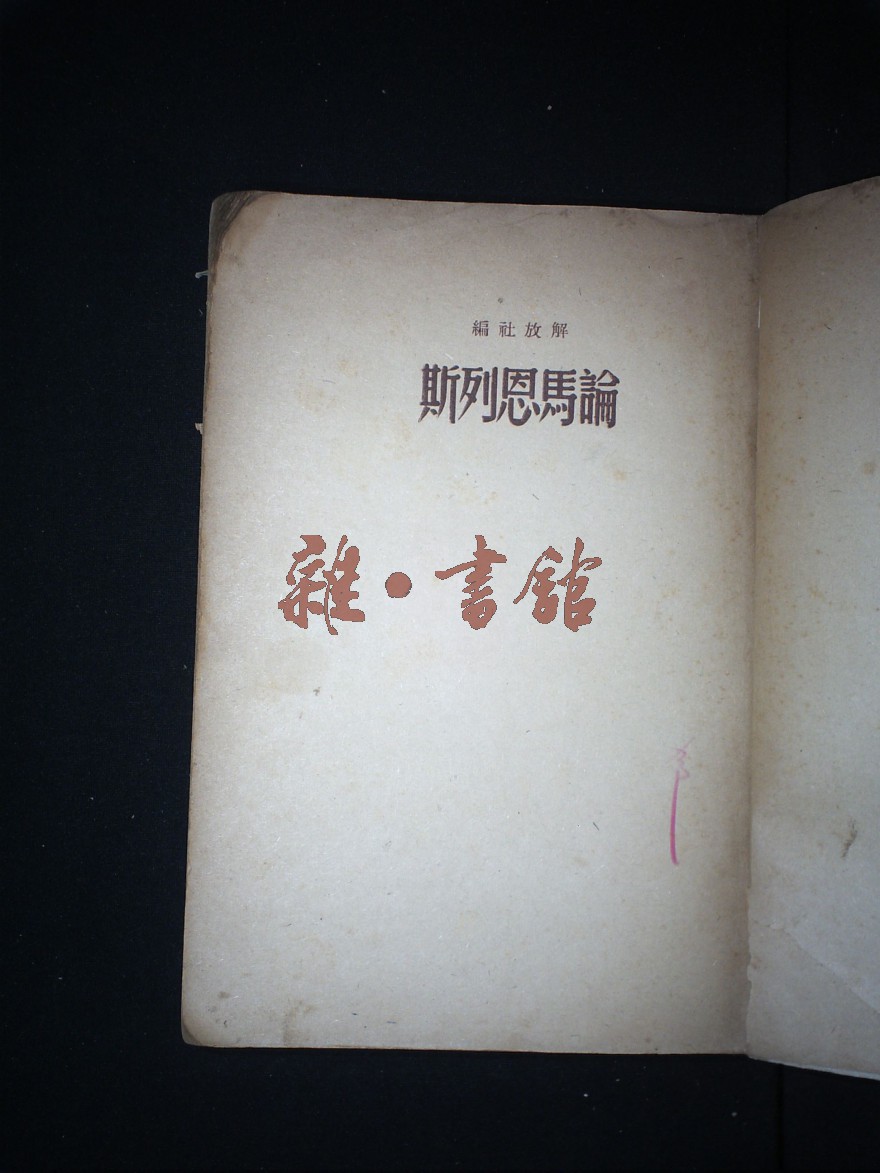 解放社編
論馬恩列斯
雜·書館